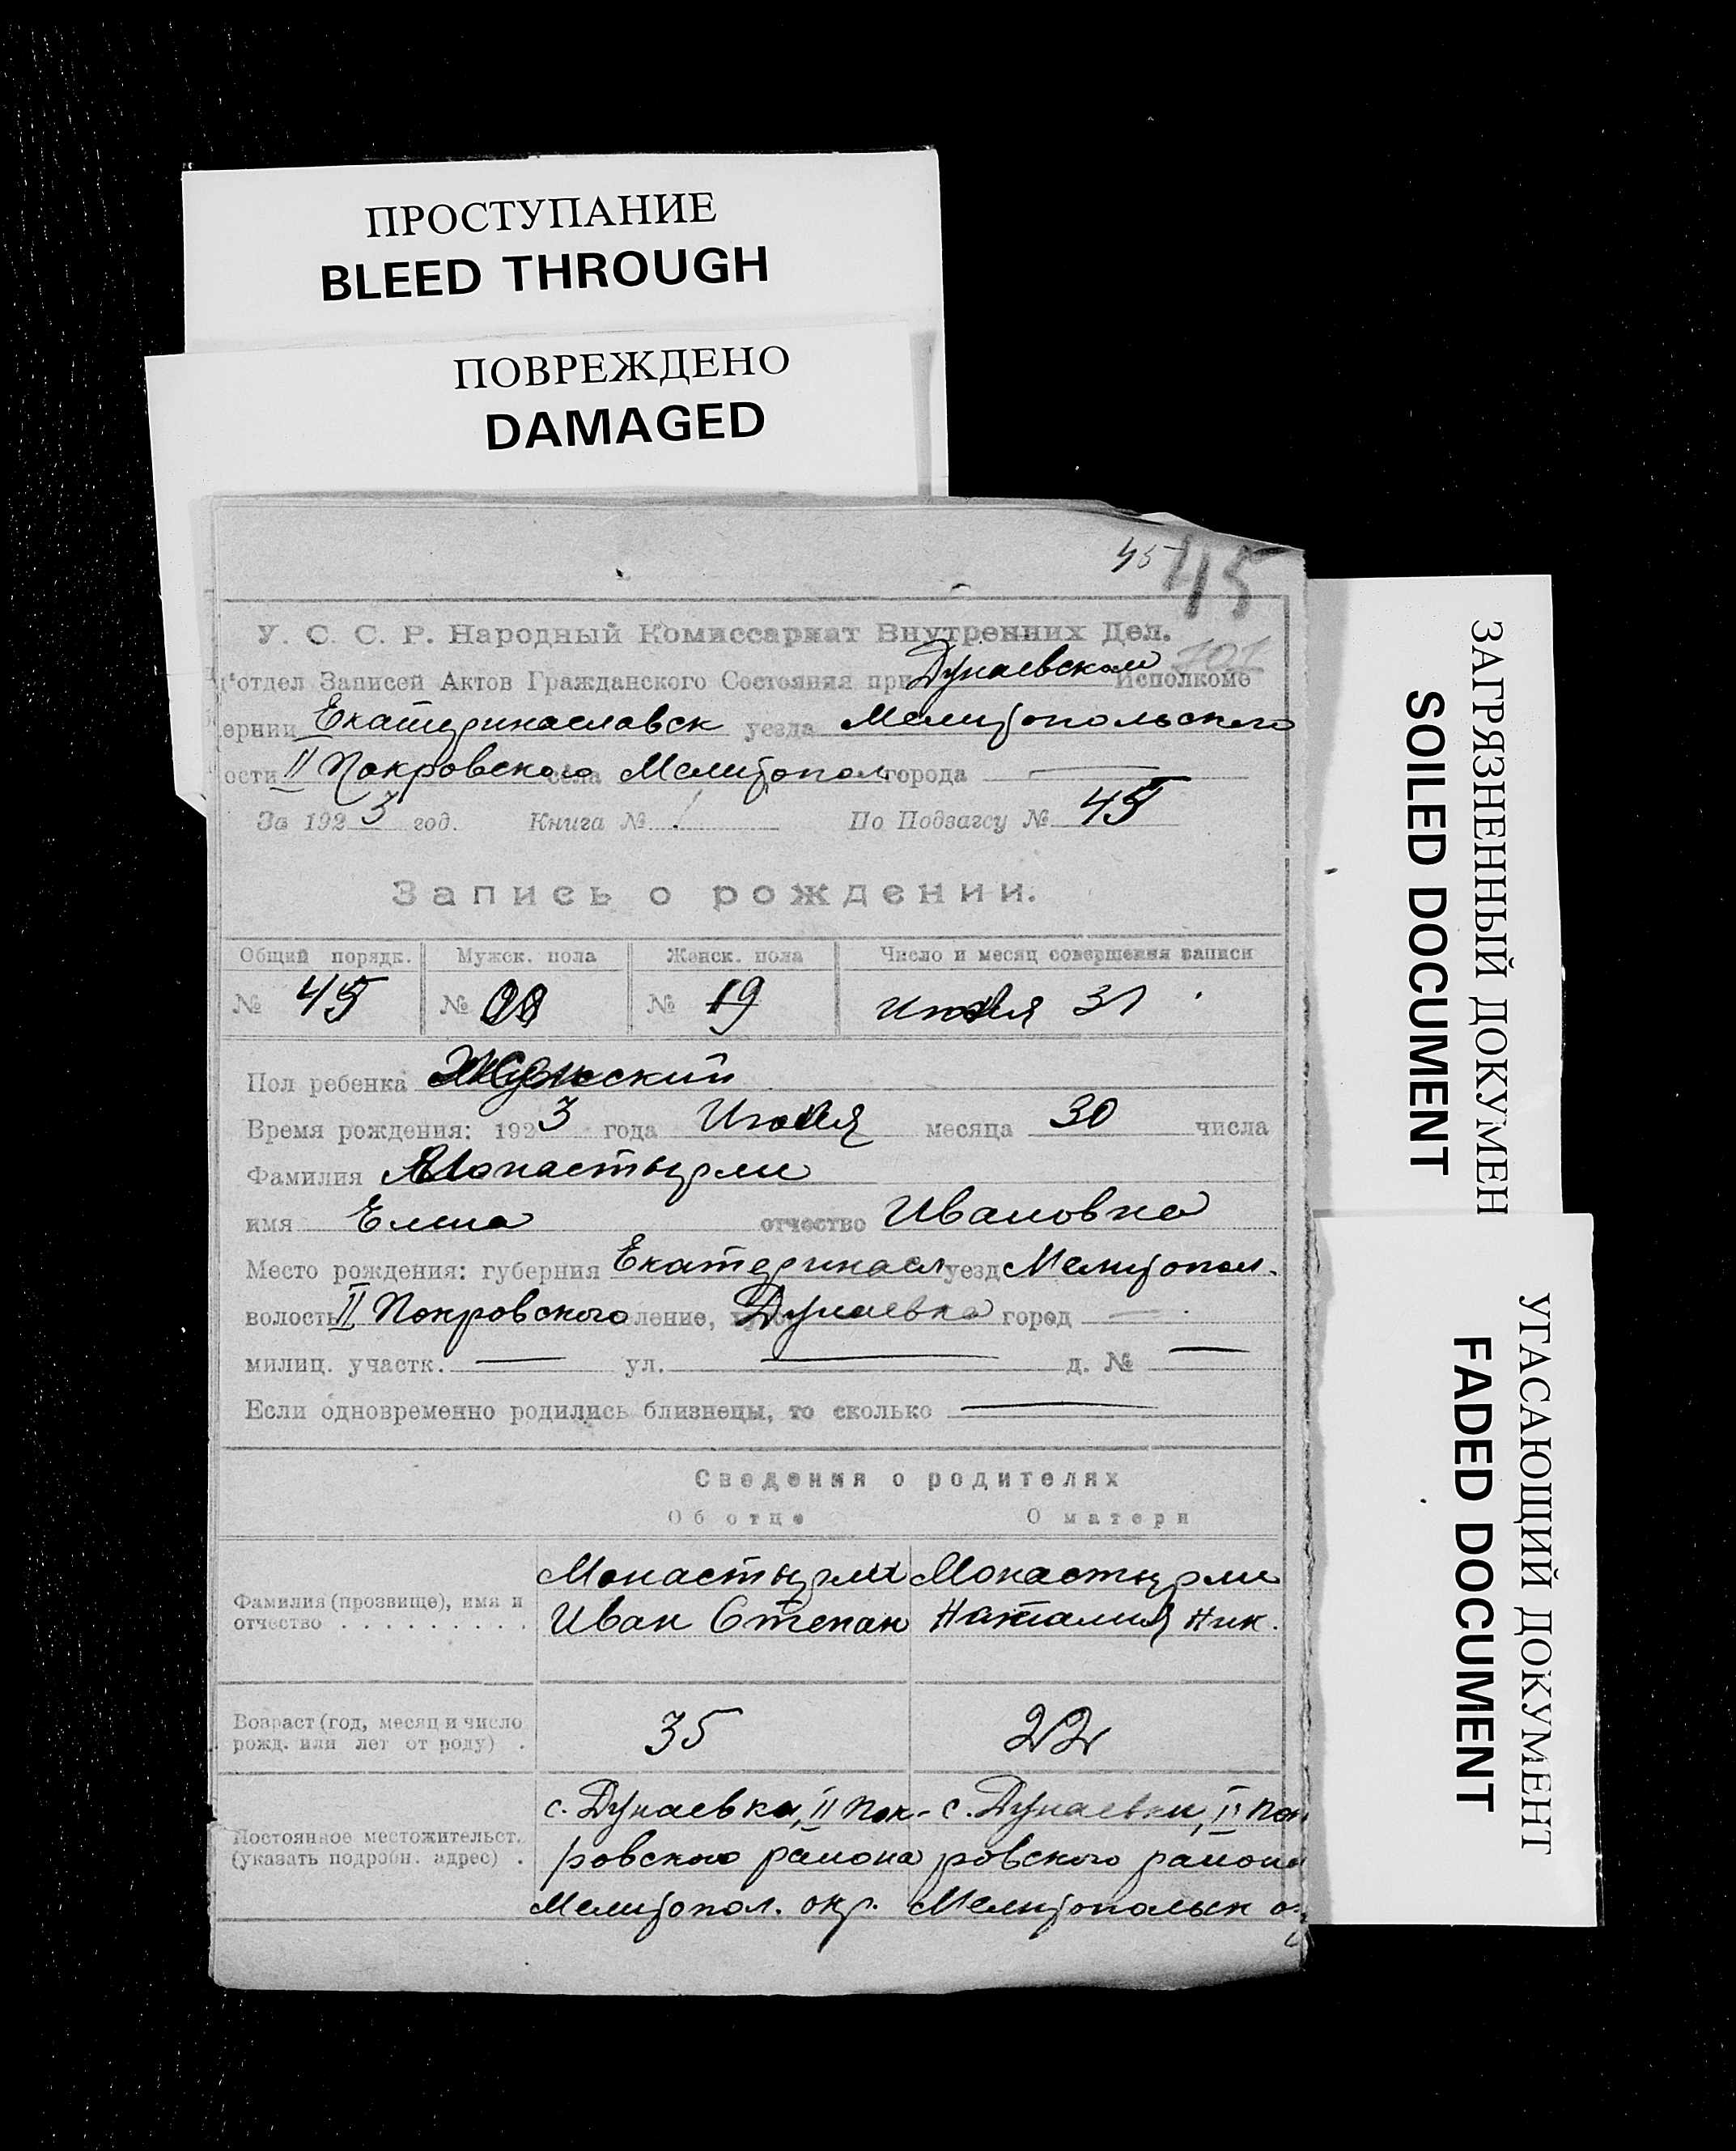 ПРОСТУПАНИЕ
BLEED THROUGH
ПОВРЕЖДЕНО
DAMAGED
45 45
У. С. С. Р. Народный Комиссариат Внутренних Дел.
отдел Записей Актов Гражданского Состояния при Дунаевском Исполкоме
ернии Екатеринаславск уезда Мелитопольского
ости II Покровского села Мелитопол города —
За 1923 год. Книга № 1 По Подзагсу № 45
Запись о рождении.
Общий порядк. Мужск. пола Женск. пола Число и месяц совершения записи
№ 45 № № 19 31
Пол ребенка
Время рождения: 1923 года месяца 30 числа
Фамилия Монастырли
имя Елена отчество Ивановна
Место рождения: губерния Екатеринасл уезд Мелитопол.
волость II Покровского ление, Дунаевка город —
милиц. участк. — ул. — д. № —
Если одновременно родились близнецы, то сколько —
Сведения о родителях
Об отце О матери
Фамилия (прозвище), имя и отчество . . . . . . . . .
Монастырли
Иван Степан
Монастырли
Наталия Ник.
Возраст (год, месяц и число рожд. или лет от роду) .
35
22
Постоянное местожительст. (указать подробн. адрес) .
с. Дунаевка, II Пок-
ровского района
Мелитопол. окр.
с. Дунаевки, II Пок
ровского района
Мелитопольск
ЗАГРЯЗНЕННЫЙ ДОКУМЕН
SOILED DOCUMENT
УГАСАЮЩИЙ ДОКУМЕНТ
FADED DOCUMENT